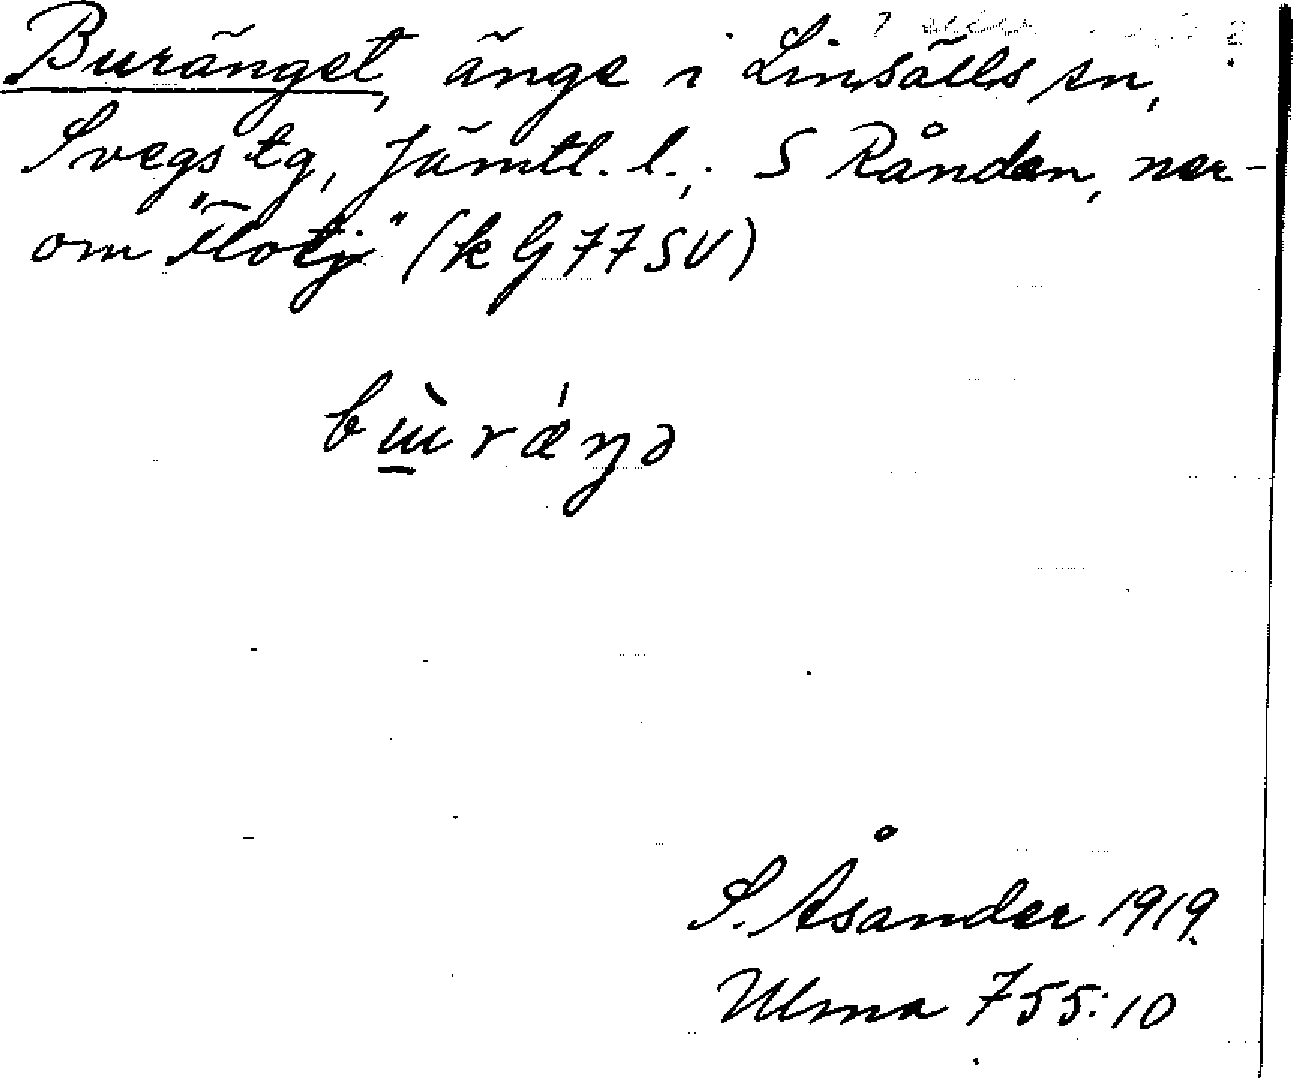 Buränget, änge i Linsälls sn,
Svegs tg, Jämtl. l.; S Råndan, ner-
om "Flotj" (k G 77 SV)
bùrǽŋə
S. Åsander 1919.
Ulma 755:10